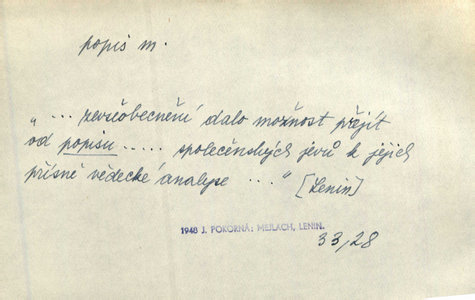 popis m.
„ ... zevšeobecnění dalo možnost přejít
od popisu ..... společenských jevů k jejich
přísně vědecké analyse ..." [Lenin]
1948 J. POKORNÁ: MEJLACH, LENIN.
33,28